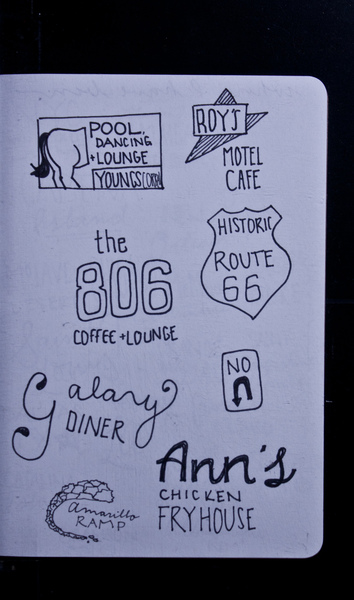 POOL,
DANCING
+LOUNGE
YOUNGS CORRAL
ROY'S
MOTEL
CAFE
the
806
COFFEE + LOUNGE
HISTORIC
ROUTE
66
NO
Galary
DINER
Ann's
CHICKEN
FRYHOUSE
Amarillo
RAMP